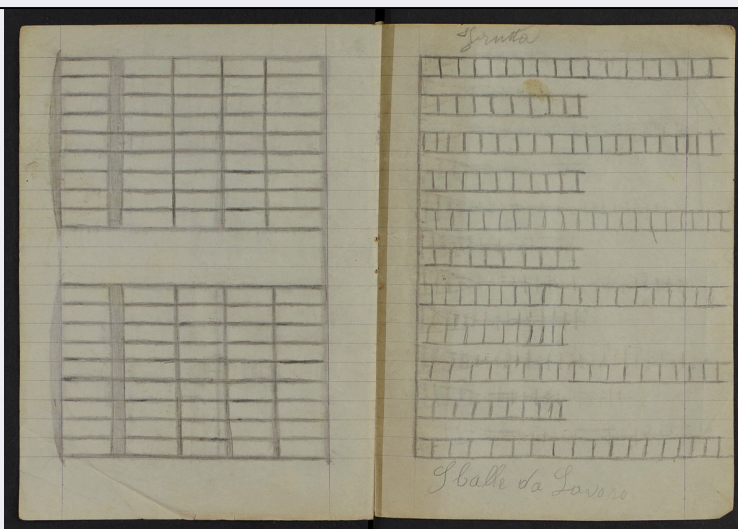 Grutta
Sballe da Lavoro